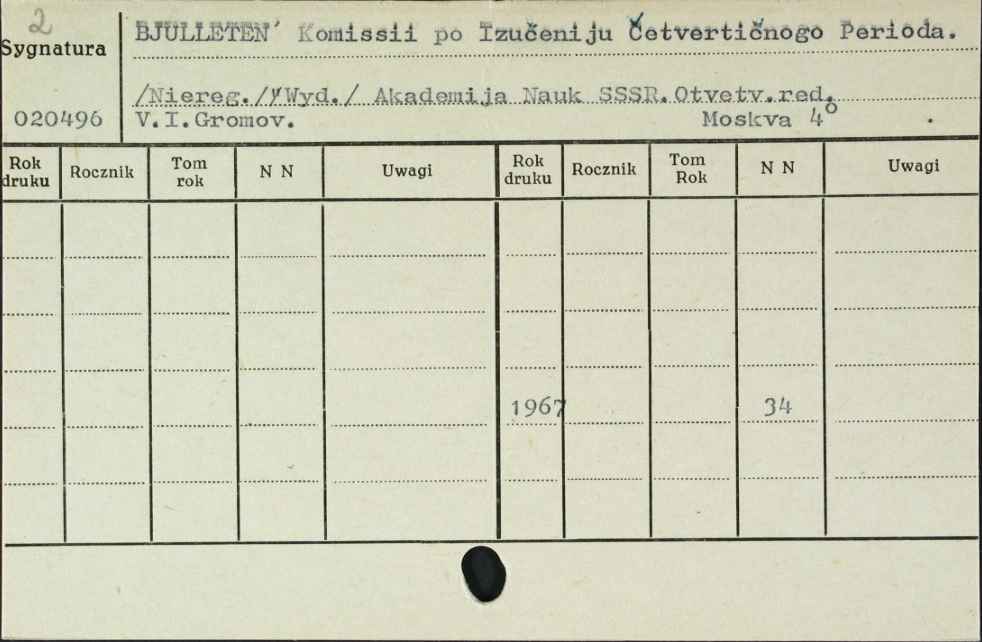 2
Sygnatura
BJULLETEN´ Komissii po Izučeniju Četvertičnogo Perioda.
/Niereg./ Wyd./ Akademija Nauk SSSR.Otvetv.red.
020496
V.I.Gromov. Moskva 4°
Rok druku Rocznik Tom rok N N Uwagi Rok druku Rocznik Tom Rok N N Uwagi
1967 34